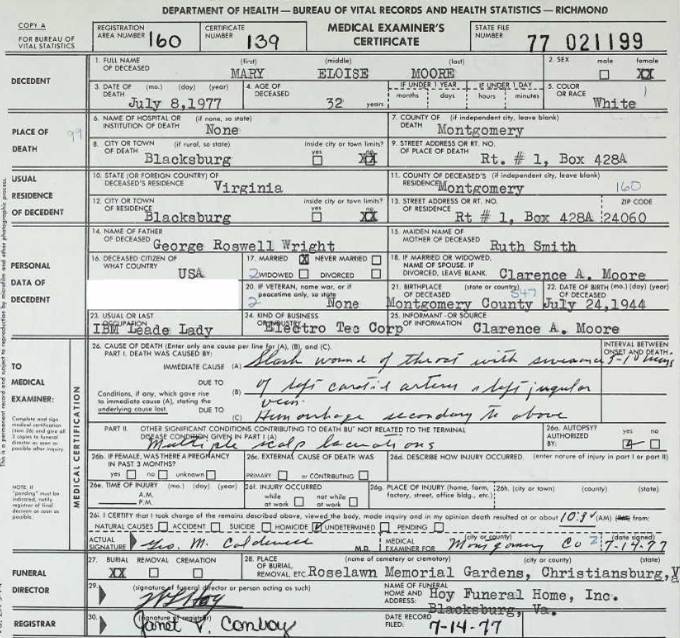 DEPARTMENT OF HEALTH — BUREAU OF VITAL RECORDS AND HEALTH STATISTICS — RICHMOND
COPY A
FOR BUREAU OF VITAL STATISTICS
REGISTRATION AREA NUMBER 160
CERTIFICATE NUMBER 139
MEDICAL EXAMINER'S CERTIFICATE
STATE FILE NUMBER 77 021199
DECEDENT
1. FULL NAME OF DECEASED (first) (middle) (last)
MARY ELOISE MOORE
2. SEX male female XX
3. DATE OF DEATH (mo.) (day) (year)
July 8,1977
4. AGE OF DECEASED 32 years
IF UNDER 1 YEAR months days
IF UNDER 1 DAY hours minutes
5. COLOR OR RACE White
PLACE OF DEATH
99
6. NAME OF HOSPITAL OR INSTITUTION OF DEATH (if none, so state)
None
7. COUNTY OF DEATH (if independent city, leave blank)
Montgomery
8. CITY OR TOWN OF DEATH (if rural, so state) inside city or town limits? yes no XX
Blacksburg
9. STREET ADDRESS OR RT. NO. OF PLACE OF DEATH
Rt. # 1, Box 428A
USUAL RESIDENCE OF DECEDENT
10. STATE (OR FOREIGN COUNTRY) OF DECEASED'S RESIDENCE
Virginia
11. COUNTY OF DECEASED'S RESIDENCE (if independent city, leave blank)
Montgomery 160
12. CITY OR TOWN OF RESIDENCE inside city or town limits? yes no XX
Blacksburg
13. STREET ADDRESS OR RT. NO. OF RESIDENCE ZIP CODE
Rt # 1, Box 428A 24060
PERSONAL DATA OF DECEDENT
14. NAME OF FATHER OF DECEASED
George Roswell Wright
15. MAIDEN NAME OF MOTHER OF DECEASED
Ruth Smith
16. DECEASED CITIZEN OF WHAT COUNTRY
USA
17. MARRIED X NEVER MARRIED
2 WIDOWED DIVORCED
18. IF MARRIED OR WIDOWED, NAME OF SPOUSE. IF DIVORCED, LEAVE BLANK.
Clarence A. Moore
20. IF VETERAN, name war, or if peacetime only, so state
2 None
21. BIRTHPLACE OF DECEASED (state or country) 547
Montgomery County
22. DATE OF BIRTH (mo.) (day) (year) OF DECEASED
July 24,1944
23. USUAL OR LAST OCCUPATION
IBM Leade Lady
24. KIND OF BUSINESS OR INDUSTRY
Electro Tec Corp
25. INFORMANT - OR SOURCE OF INFORMATION
Clarence A. Moore
TO MEDICAL EXAMINER:
MEDICAL CERTIFICATION
26. CAUSE OF DEATH (Enter only one cause per line for (A), (B), and (C).
INTERVAL BETWEEN ONSET AND DEATH
PART I. DEATH WAS CAUSED BY:
IMMEDIATE CAUSE (A) Slash wound of throat with severance
DUE TO of left carotid artery & left jugular
Conditions, if any, which gave rise to immediate cause (A), stating the underlying cause last.
(B) vein
DUE TO
(C) Hemorrhage secondary to above
PART II. OTHER SIGNIFICANT CONDITIONS CONTRIBUTING TO DEATH BUT NOT RELATED TO THE TERMINAL DISEASE CONDITION GIVEN IN PART I (A)
Multiple scalp lacerations
26a. AUTOPSY? yes no
AUTHORIZED BY:
26b. IF FEMALE, WAS THERE A PREGNANCY IN PAST 3 MONTHS?
yes no unknown
26c. EXTERNAL CAUSE OF DEATH WAS
PRIMARY or CONTRIBUTING
26d. DESCRIBE HOW INJURY OCCURRED. (enter nature of injury in part I or part II)
26e. TIME OF INJURY (mo.) (day) (year)
A.M.
P.M.
26f. INJURY OCCURRED
while at work not while at work
26g. PLACE OF INJURY (home, farm, factory, street, office bldg., etc.)
26h. (city or town) (county) (state)
26i. I CERTIFY that I took charge of the remains described above, viewed the body, made inquiry and in my opinion death resulted at or about (AM) from:
NATURAL CAUSES ACCIDENT SUICIDE HOMICIDE UNDETERMINED PENDING
ACTUAL SIGNATURE Geo. M. Caldwell M.D.
MEDICAL EXAMINER FOR (city or county) Montgomery Co 2
(date signed) 7-14-77
FUNERAL DIRECTOR
27. BURIAL REMOVAL CREMATION
XX
28. PLACE OF BURIAL, REMOVAL, ETC. (name of cemetery or crematory) (county) (state)
Roselawn Memorial Gardens, Christiansburg, V
29. (signature of funeral director or person acting as such)
NAME OF FUNERAL HOME AND ADDRESS:
Hoy Funeral Home, Inc.
Blacksburg, Va.
REGISTRAR
30. (signature of registrar)
Janet V. Conboy
DATE RECORD FILED: 7-14-77